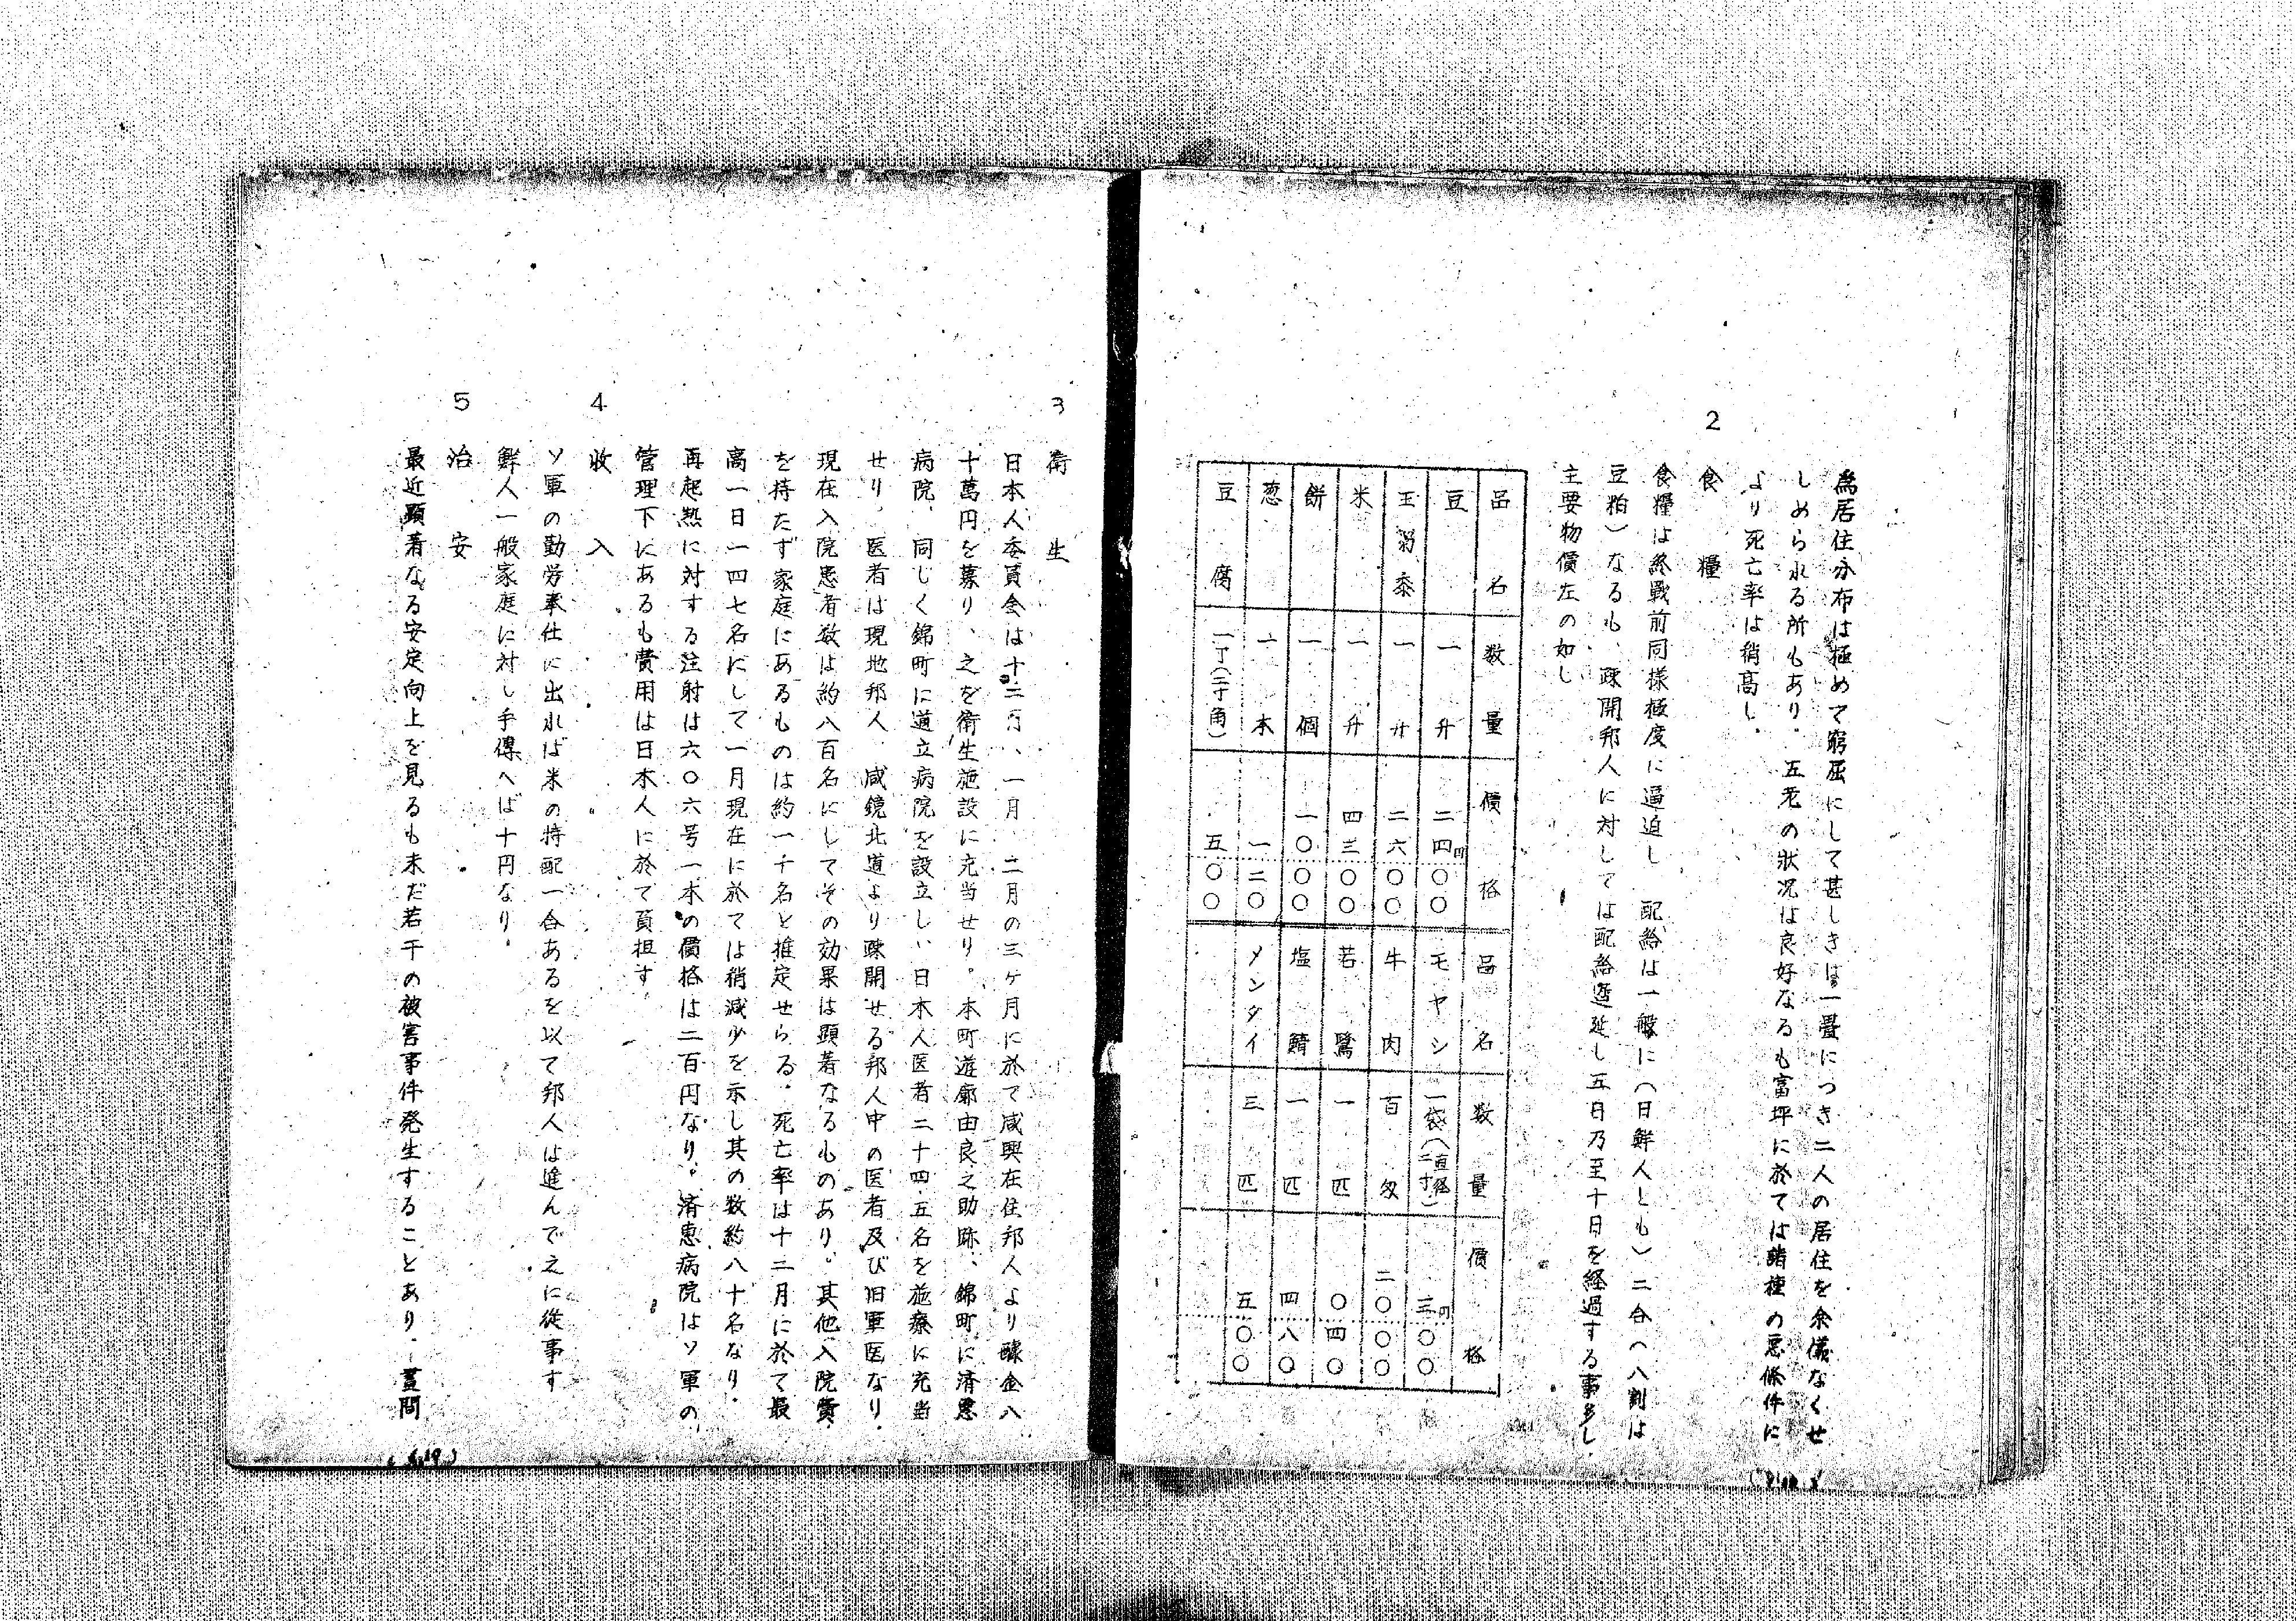 為居住分布は極めて窮屈にして甚しきは一畳につき二人の居住を余儀なくせ
しめられる所もあり、五老の状況は良好なるも富坪に於ては諸種の悪條件に
より死亡率は稍高し、
2 食糧
食糧は終戰前同様極度に逼迫し 配給は一般に(日鮮人とも)二合(八割は
豆粕)なるも、疎開邦人に対しては配給遅延し五日乃至十日を経過する事多し、
主要物價左の如し
品名 数量 價格 品名 数量 價格
豆 一升 二四円〇〇 モヤシ 一袋(直径二寸) 三円〇〇
玉蜀黍 一升 二六〇〇 牛肉 百匁 二〇〇〇
米 一升 四三〇〇 若鷺 一匹 〇四〇
餅 一個 一〇〇〇 塩鯖 一匹 四八〇
葱 一本 一二〇 メンタイ 三匹 五〇〇
豆腐 一丁(二寸角) 五〇〇
3 衛生
日本人委員会は十二月、一月、二月の三ヶ月に於て咸興在住邦人より醵金八
十萬円を募り、之を衛生施設に充当せり。本町遊廓由良之助跡、錦町に済恵
病院、同じく錦町に道立病院を設立し、日本人医者二十四、五名を施療に充当
せり、医者は現地邦人、咸鏡北道より疎開せる邦人中の医者及び旧軍医なり、
現在入院患者数は約八百名にしてその効果は顕著なるものあり、其他入院費
を持たず家庭にあるものは約一千名と推定せらる、死亡率は十二月に於て最
高一日一四七名にして一月現在に於ては稍減少を示し其の数約八十名なり、
再起熱に対する注射は六〇六号一本の價格は二百円なり、済恵病院はソ軍の
管理下にあるも費用は日本人に於て負担す
4 收入
ソ軍の勤労奉仕に出れば米の特配一合あるを以て邦人は進んで之に従事す
鮮人一般家庭に対し手傳へば十円なり、
5 治安
最近顕著なる安定向上を見るも未だ若干の被害事件発生することあり、晝間